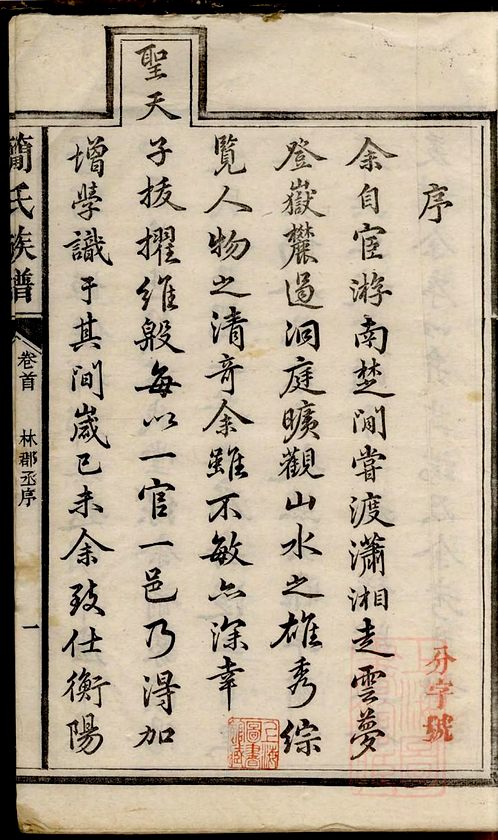 序
余自宦游南楚間嘗渡瀟湘走雲夢
登嶽麓過洞庭曠觀山水之雄秀綜
覽人物之清奇余雖不敏亦深幸
聖天子拔擢維殷每以一官一邑乃得加
增學識于其間歲己未余致仕衡陽
簡氏族譜
卷首
林郡丞序
一
分字號
上海圖書館藏